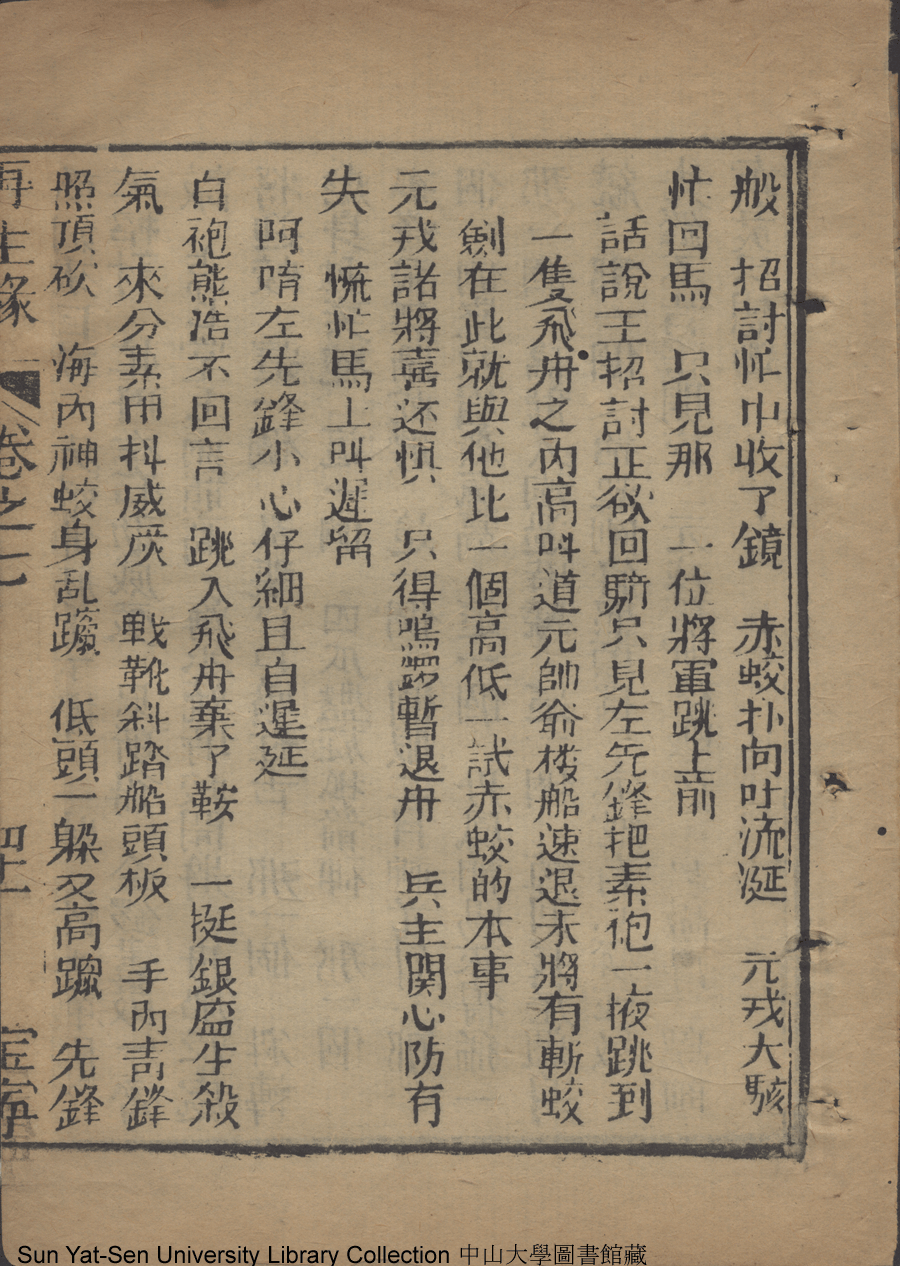 般　招討忙中收了鏡　赤蛟扑向吐流涎　元戎大駭
忙回馬　只見那　一位將軍跳上前
話說王招討正欲回騎只見左先鋒把素袍一掖跳到
一隻飛舟之內高叫道元帥爺楼船速退末將有斬蛟
劍在此就與他比一個高低一試赤蛟的本事
元戎諾將喜还惧　只得鳴鑼暫退舟　兵主関心防有
失　慌忙馬上叫遲留
阿唷左先鋒小心仔細且自遲延
白袍熊浩不回言　跳入飛舟棄了鞍　一挺銀盔生殺
氣　來分素甲抖威嚴　戰靴斜踏船頭板　手內青鋒
照頂砍　海內神蛟身乱躥　低頭一躲又高躥　先鋒
再生緣　卷之七　四十一　宝寧
Sun Yat-Sen University Library Collection 中山大學圖書館藏